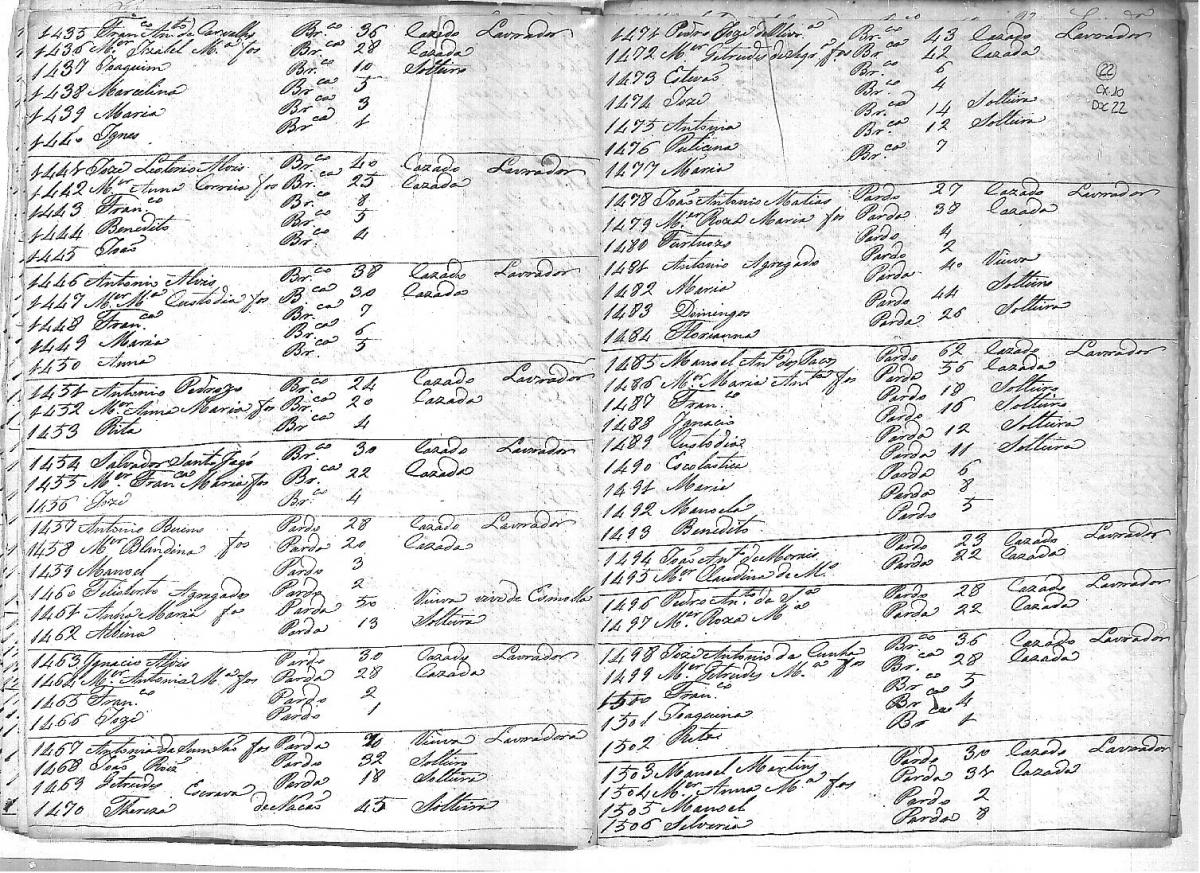 1435 Fran.co An.to de Carvalho Br.co 36 Cazado Lavrador
1436 M.er Izabel M.a fos Br.ca 28 Cazada
1437 Joaquim Br.co 10 Solteiro
1438 Marcelina Br.ca 5
1439 Maria Br.ca 3
1440 Ignes Br.ca 1
1441 Joze Alvis Br.co 40 Cazado Lavrador
1442 M.er Anna Correia fos Br.ca 25 Cazada
1443 Fran.co Br.co 8
1444 Benedito Br.co 5
1445 Joaõ Br.co 4
1446 Antonio Alvis Br.co 38 Cazado Lavrador
1447 M.er M.a Custodia fos B.ca 30 Cazada
1448 Fran.ca Br.ca 7
1449 Maria Br.ca 6
1450 Anna Br.ca 5
1451 Antonio Pedrozo Br.co 24 Cazado Lavrador
1452 M.er Anna Maria fos Br.ca 20 Cazada
1453 Rita Br.ca 4
1454 Salvador Santo Jago Br.co 30 Cazado Lavrador
1455 M.er Fran.ca Maria fos Br.ca 22 Cazada
1456 Joze Br.co 4
1457 Antonio Bueno Pardo 28 Cazado Lavrador
1458 M.er Blandina fos Parda 20 Cazada
1459 Manoel Pardo 3
1460 Felisberto Agregado Pardo 2
1461 Anna Maria fo Parda 50 Viuva vive de Esmolla
1462 Albina Parda 13 Solteira
1463 Ignacio Alvis Pardo 30 Cazado Lavrador
1464 M.er Antonia M.a fos Parda 28 Cazada
1465 Fran.co Pardo 2
1466 Joze Pardo 1
1467 Antonia da fos Parda Viuva Lavradora
1468 Joaõ Roiz Pardo 32 Solteiro
1469 Getrudes Parda 18 Solteira
Escrava
1470 Thereza de Naçaõ 45 Solteira
1471 Pedro Joze Br.co 43 Cazado Lavrador
1472 M.er Getrudes fos Br.ca 42 Cazada
1473 Br.co 6
1474 Joze Br.co 4
1475 Antonia Br.ca 14 Solteira
1476 Br.ca 12 Solteira
1477 Maria Br.ca 7
22
CX.10
Doc 22
1478 Joaõ Antonio Matias Pardo 27 Cazado Lavrador
1479 M.er Roza Maria fos Parda 38 Cazada
1480 Furtuozo Pardo 4
1481 Antonio Agregado Pardo 2
1482 Maria Parda 40 Viuva
1483 Domingos Pardo 44 Solteiro
1484 Florianna Parda 26 Solteira
1485 Manoel An.to Pardo 62 Cazado Lavrador
1486 M.er Maria An.ta fos Parda 56 Cazada
1487 Fran.co Pardo 18 Solteiro
1488 Ignacio Pardo 16 Solteiro
1489 Custodia Parda 12 Solteira
1490 Escolastica Parda 11 Solteira
1491 Maria Parda 6
1492 Manoela Parda 8
1493 Benedito Pardo 5
1494 Joaõ An.to de Morais Pardo 23 Cazado Lavrador
1495 M.er Claudina de M.o Parda 22 Cazada
1496 Pedro An.to da S.a Pardo 28 Cazado Lavrador
1497 M.er Roza M.a Parda 22 Cazada
1498 Joze Antonio da Cunha Br.co 36 Cazado Lavrador
1499 M.er Getrudes M.a fos Br.ca 28 Cazada
1500 Fran.co Br.co 5
1501 Joaquina Br.ca 4
1502 Rita Br.ca 1
1503 Manoel Martins Pardo 30 Cazado Lavrador
1504 M.er Anna M.a fos Parda 31 Cazada
1505 Manoel Pardo 2
1506 Silveria Parda 8